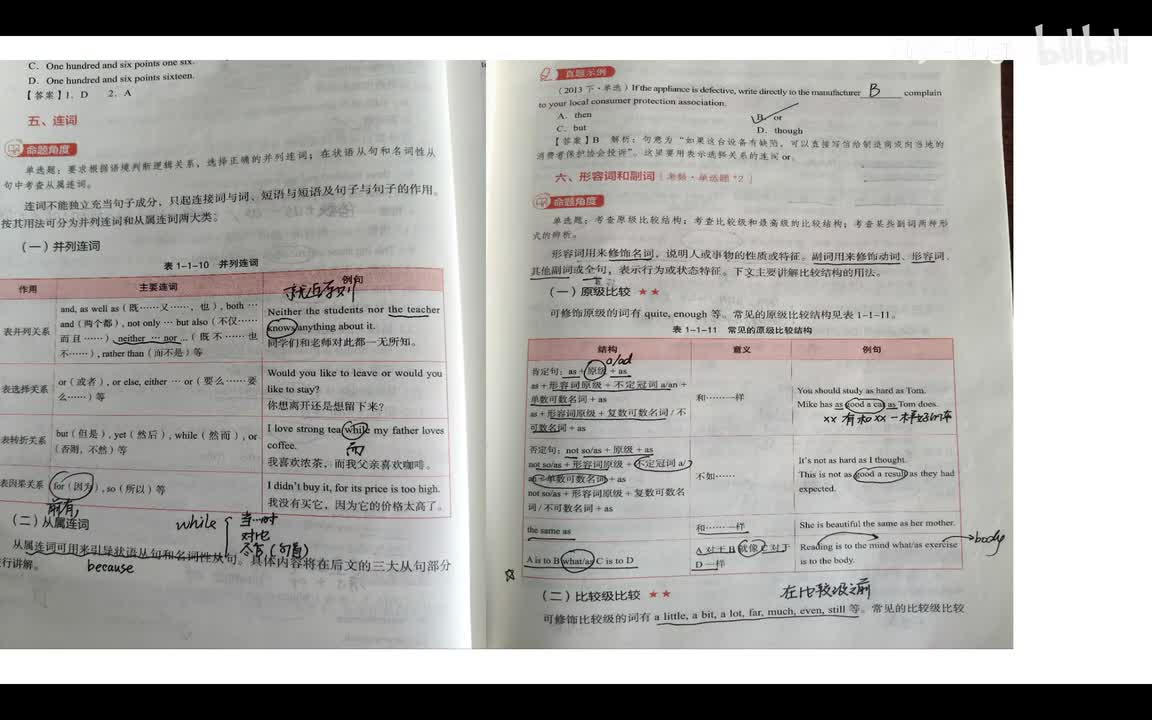 bilibili
C. One hundred and six points one six.
D. One hundred and six points sixteen.
【答案】1. D 2. A
五、连词
命题角度
单选题：要求根据语境判断逻辑关系，选择正确的并列连词；在状语从句和名词性从
句中考查从属连词。
连词不能独立充当句子成分，只起连接词与词、短语与短语及句子与句子的作用。
按其用法可分为并列连词和从属连词两大类。
（一）并列连词
表 1-1-10 并列连词
作用 主要连词 例句
就近原则
表并列关系
and, as well as（既……又……，也）, both …
and（两个都）, not only … but also（不仅……
而且……）, neither … nor …（既不……也
不……）, rather than（而不是）等
Neither the students nor the teacher
knows anything about it.
同学们和老师对此都一无所知。
表选择关系
or（或者）, or else, either … or（要么……要
么……）等
Would you like to leave or would you
like to stay?
你想离开还是想留下来？
表转折关系
but（但是）, yet（然后）, while（然而）, or
（否则，不然）等
I love strong tea while my father loves
coffee.
而
我喜欢浓茶，而我父亲喜欢咖啡。
表因果关系
for（因为）, so（所以）等
I didn't buy it, for its price is too high.
我没有买它，因为它的价格太高了。
（二）从属连词
while
当…时
对比
尽管（句首）
从属连词可用来引导状语从句和名词性从句。具体内容将在后文的三大从句部分
进行讲解。
because
真题示例
（2013 下·单选）If the appliance is defective, write directly to the manufacturer B complain
to your local consumer protection association.
A. then B. or
C. but D. though
【答案】B 解析：句意为“如果这台设备有缺陷，可以直接写信给制造商或向当地的
消费者保护协会投诉”。这里要用表示选择关系的连词 or。
六、形容词和副词［考频·单选题*2］
命题角度
单选题：考查原级比较结构；考查比较级和最高级的比较结构；考查某些副词两种形
式的辨析。
形容词用来修饰名词，说明人或事物的性质或特征。副词用来修饰动词、形容词、
其他副词或全句，表示行为或状态特征。下文主要讲解比较结构的用法。
（一）原级比较 ★★
可修饰原级的词有 quite, enough 等。常见的原级比较结构见表 1-1-11。
表 1-1-11 常见的原级比较结构
结构 意义 例句
a/ad
肯定句：as + 原级 + as
as + 形容词原级 + 不定冠词 a/an +
单数可数名词 + as
as + 形容词原级 + 复数可数名词 / 不
可数名词 + as
和……一样
You should study as hard as Tom.
Mike has as good a car as Tom does.
xx 有和 xx 一样好的车
否定句：not so/as + 原级 + as
not so/as + 形容词原级 + 不定冠词 a/
an + 单数可数名词 + as
not so/as + 形容词原级 + 复数可数名
词 / 不可数名词 + as
不如……
It's not as hard as I thought.
This is not as good a result as they had
expected.
the same as
和……一样
She is beautiful the same as her mother.
A is to B what/as C is to D
A 对于 B 就像 C 对于
D 一样
Reading is to the mind what/as exercise
is to the body.
body
（二）比较级比较 ★★
在比较级之前
可修饰比较级的词有 a little, a bit, a lot, far, much, even, still 等。常见的比较级比较